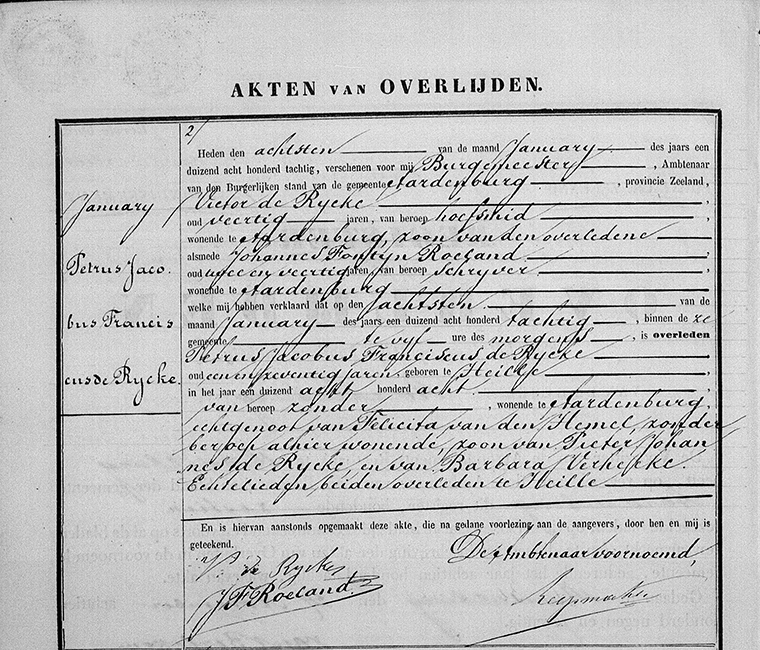 AKTEN VAN OVERLIJDEN.
2/
January
Petrus Jaco.
bus Francis
cus de Rycke.
Heden den achtsten van de maand January des jaars een
duizend acht honderd tachtig, verschenen voor mij Burgemeester, Ambtenaar
van den Burgerlijken stand van de gemeente Aardenburg, provincie Zeeland,
Victor de Rycke,
oud veertig jaren, van beroep hoefsmid,
wonende te Aardenburg, zoon van den overledene
alsmede Johannes Fontyn Roeland,
oud twee en veertig jaren, van beroep Schryver,
wonende te Aardenburg,
welke mij hebben verklaard dat op den achtsten van de
maand January des jaars een duizend acht honderd tachtig, binnen de ze
gemeente te vyf ure des morgens, is overleden
Petrus Jacobus Franciscus de Rycke
oud een en zeventig jaren geboren te Heille,
in het jaar een duizend acht honderd acht,
van beroep zonder, wonende te Aardenburg,
echtgenoot van Felicita van den Hemel, zonder
beroep alhier wonende, zoon van Pieter Johan
nes de Rycke en van Barbara Verhecke.
Echtelieden beiden overleden te Heille
En is hiervan aanstonds opgemaakt deze akte, die na gedane voorlezing aan de aangevers, door hen en mij is
geteekend.
De Ambtenaar voornoemd,
V. de Rycke
J F Roeland.